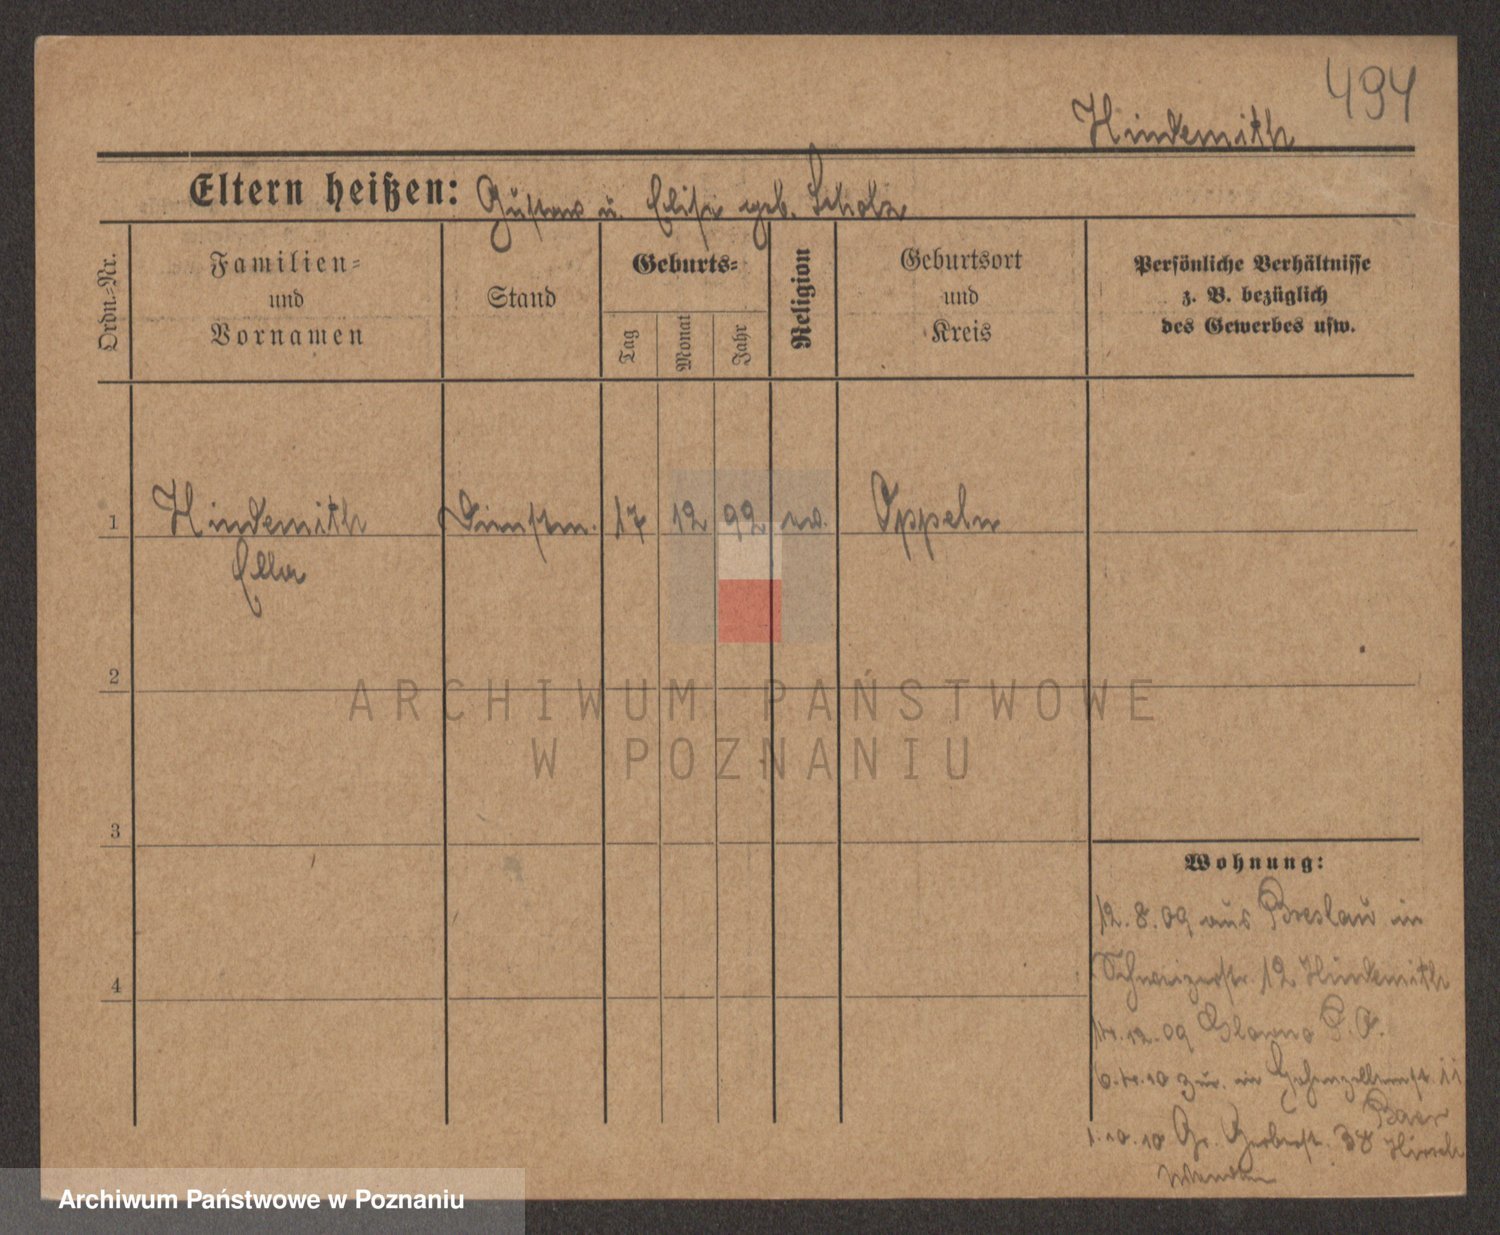 494
Hindemith
Eltern heißen: Gustav u. Elise geb. Scholz
Ordn.-Nr.
Familien-
und
Vornamen
Stand
Geburts-
Tag
Monat
Jahr
Religion
Geburtsort
und
Kreis
Persönliche Verhältnisse
z. B. bezüglich
des Gewerbes usw.
1 Hindemith Dienstm. 17 12 92 ev. Oppeln
Ella
2
ARCHIWUM PAŃSTWOWE
W POZNANIU
3
4
Wohnung:
12.8.09 aus Breslau in
Schweizerstr. 12 Hindemith
12.09
10 zur. in Hohenzollernstr. 11
Baer
1.10.10 Gr. Gerberst. 38 Hirsch
Archiwum Państwowe w Poznaniu